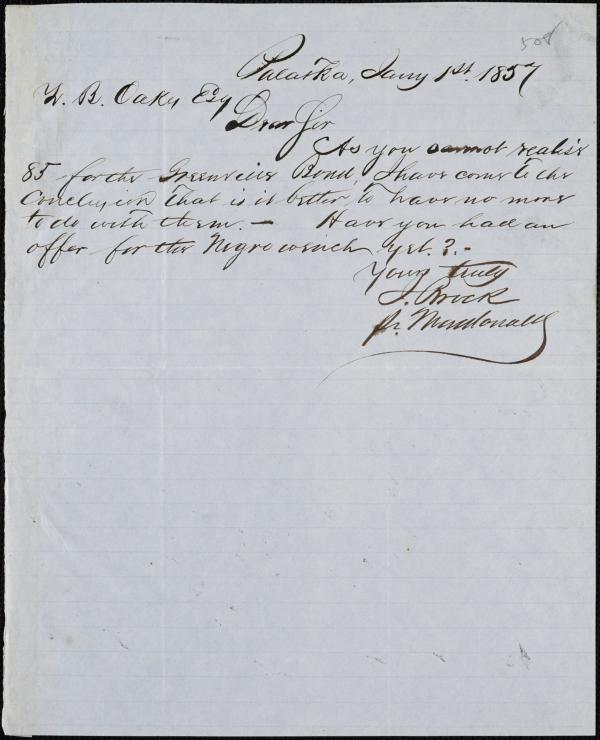 508
Palatka, Jany 1st. 1857
Z. B. Oakes Esq
Dear Sir
As you cannot realise
85 for the Greenville Bond, I have come to the
Conclusion that is is better to have no more
to do with them. — Have you had an
offer for the Negro wench yet.?.-
Yours truly
J. Brock
pr. Macdonald